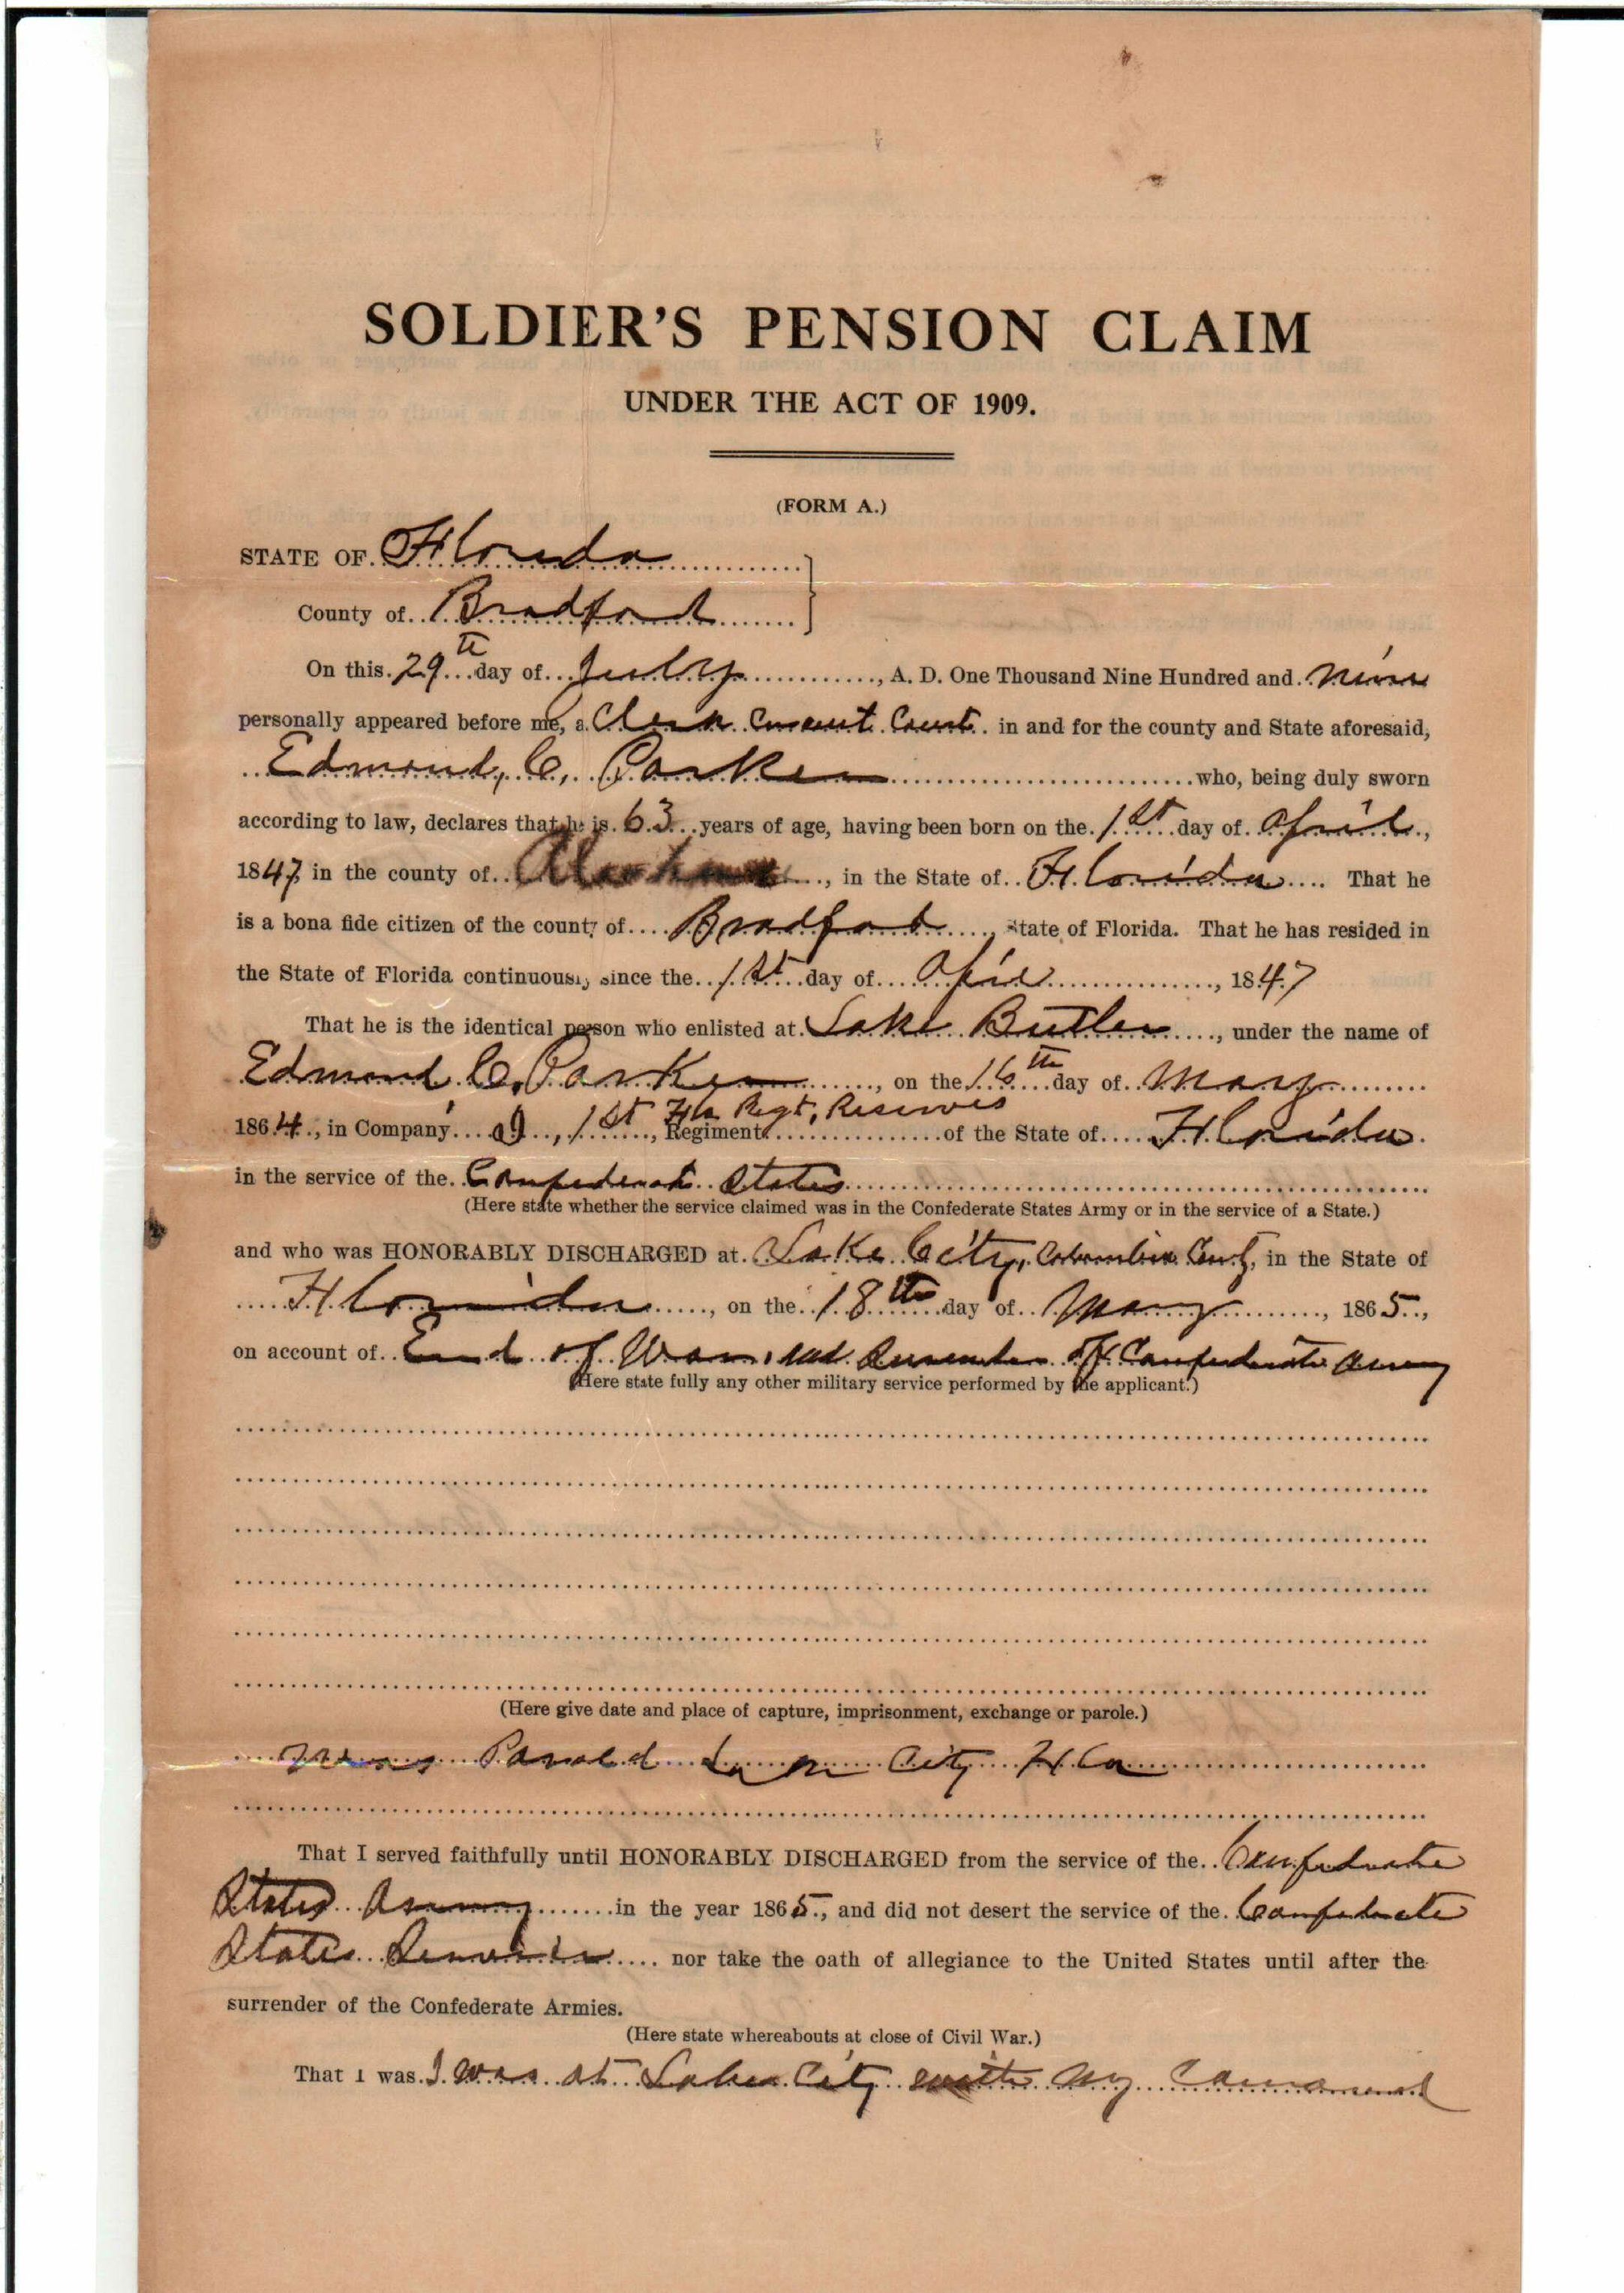 SOLDIER'S PENSION CLAIM
UNDER THE ACT OF 1909.
(FORM A.)
STATE OF Florida
County of Bradford
On this 29th day of July, A. D. One Thousand Nine Hundred and Nine
personally appeared before me, a Clerk Circuit Court in and for the county and State aforesaid,
Edmond, C, Parker who, being duly sworn
according to law, declares that he is 63 years of age, having been born on the 1st day of April,
1847, in the county of Alachua, in the State of Florida. That he
is a bona fide citizen of the county of Bradford, State of Florida. That he has resided in
the State of Florida continuously since the 1st day of April, 1847
That he is the identical person who enlisted at Lake Butler, under the name of
Edmond C. Parker, on the 16th day of May
1864, in Company, 1st, Fla Regt, Reserves Regiment of the State of Florida
in the service of the Confederate States
(Here state whether the service claimed was in the Confederate States Army or in the service of a State.)
and who was HONORABLY DISCHARGED at Lake City, Columbia County, in the State of
Florida, on the 18th day of May, 1865,
on account of End of War, and Surrender of Confederate Army
(Here state fully any other military service performed by the applicant.)
(Here give date and place of capture, imprisonment, exchange or parole.)
was Parold Lake City Fla
That I served faithfully until HONORABLY DISCHARGED from the service of the Confederate
States Army in the year 1865, and did not desert the service of the Confederate
States Service nor take the oath of allegiance to the United States until after the
surrender of the Confederate Armies.
(Here state whereabouts at close of Civil War.)
That I was I was at Lake City with my Command